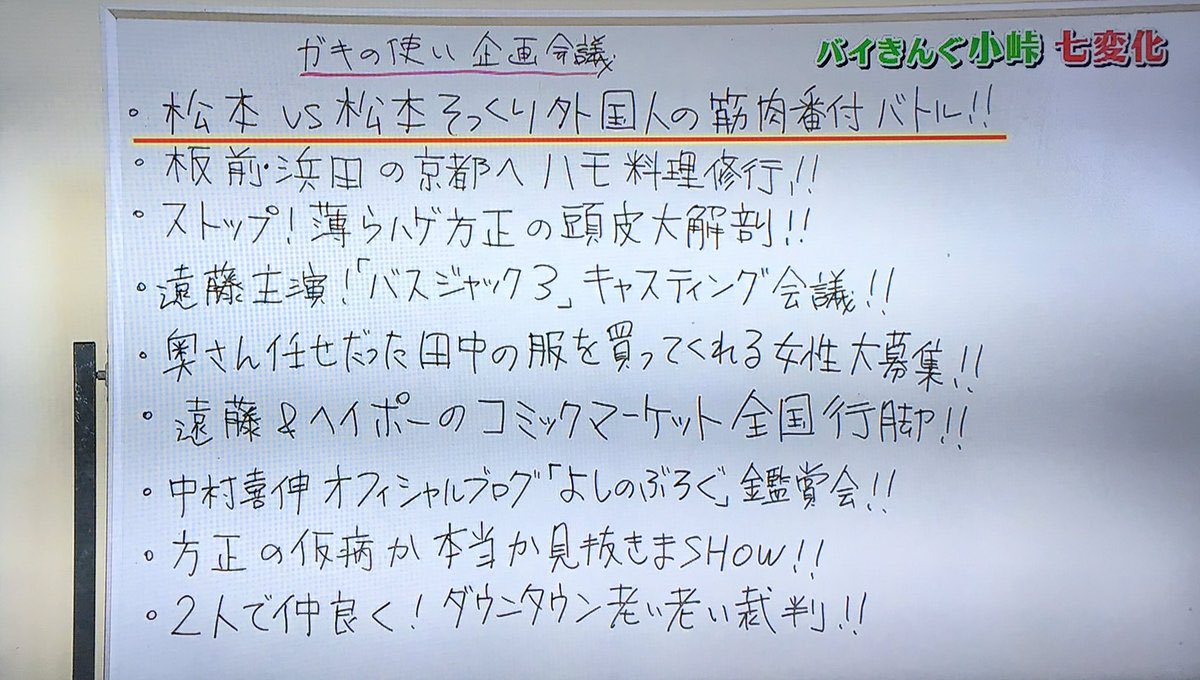 ガキの使い 企画会議
バイきんぐ小峠 七変化
・松本 VS 松本そっくり外国人の筋肉番付バトル!!
・板前・浜田の京都へハモ料理修行!!
・ストップ!薄らハゲ方正の頭皮大解剖!!
・遠藤主演!「バスジャック3」キャスティング会議!!
・奥さん任せだった田中の服を買ってくれる女性大募集!!
・遠藤&ヘイポーのコミックマーケット全国行脚!!
・中村喜伸オフィシャルブログ「よしのぶろぐ」鑑賞会!!
・方正の仮病か本当か見抜きまSHOW!!
・2人で仲良く!ダウンタウン老い老い裁判!!